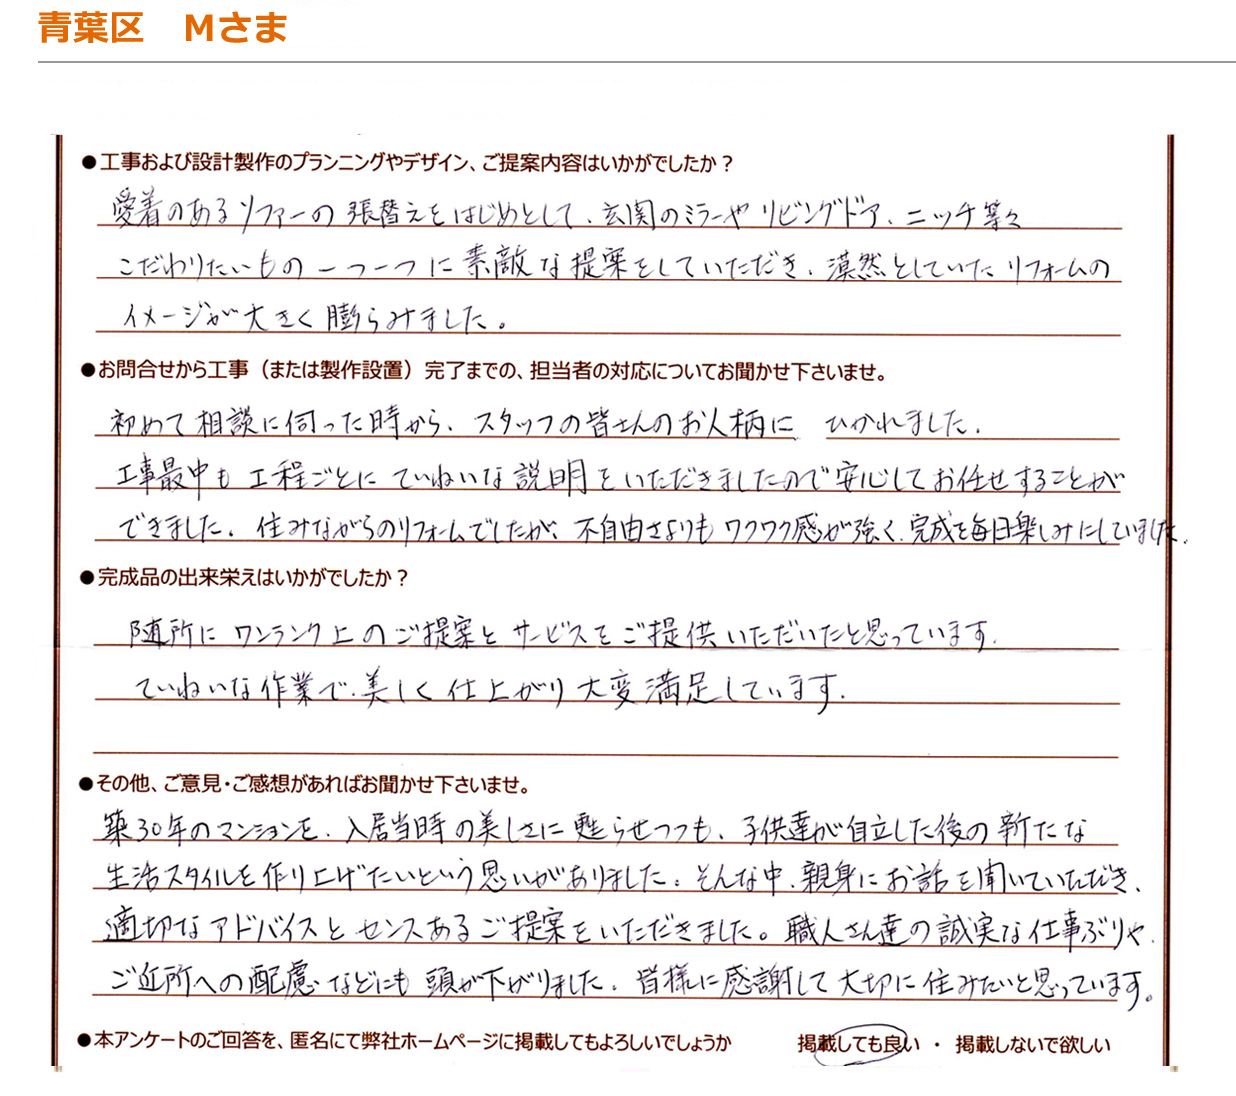 青葉区　Mさま
●工事および設計製作のプランニングやデザイン、ご提案内容はいかがでしたか？
愛着のあるソファーの張替えをはじめとして、玄関のミラーや リビングドア、ニッチ等々
こだわりたいもの一つ一つに素敵な提案をしていただき、漠然としていたリフォームの
イメージが大きく膨らみました。
●お問合せから工事（または製作設置）完了までの、担当者の対応についてお聞かせ下さいませ。
初めて相談に伺った時から、スタッフの皆さんのお人柄に ひかれました。
工事最中も工程ごとにていねいな説明をいただきましたので安心してお任せすることが
できました。住みながらのリフォームでしたが、不自由さよりもワクワク感が強く、完成を毎日楽しみにしていました。
●完成品の出来栄えはいかがでしたか？
随所にワンランク上のご提案とサービスをご提供いただいたと思っています。
ていねいな作業で、美しく仕上がり大変満足しています。
●その他、ご意見・ご感想があればお聞かせ下さいませ。
築30年のマンションを、入居当時の美しさに甦らせつつも、子供達が自立した後の新たな
生活スタイルを作り上げたいという思いがありました。そんな中、親身にお話を聞いていただき、
適切なアドバイスとセンスあるご提案をいただきました。職人さん達の誠実な仕事ぶりや、
ご近所への配慮などにも頭が下がりました。皆様に感謝して大切に住みたいと思っています。
●本アンケートのご回答を、匿名にて弊社ホームページに掲載してもよろしいでしょうか　掲載しても良い ・ 掲載しないで欲しい